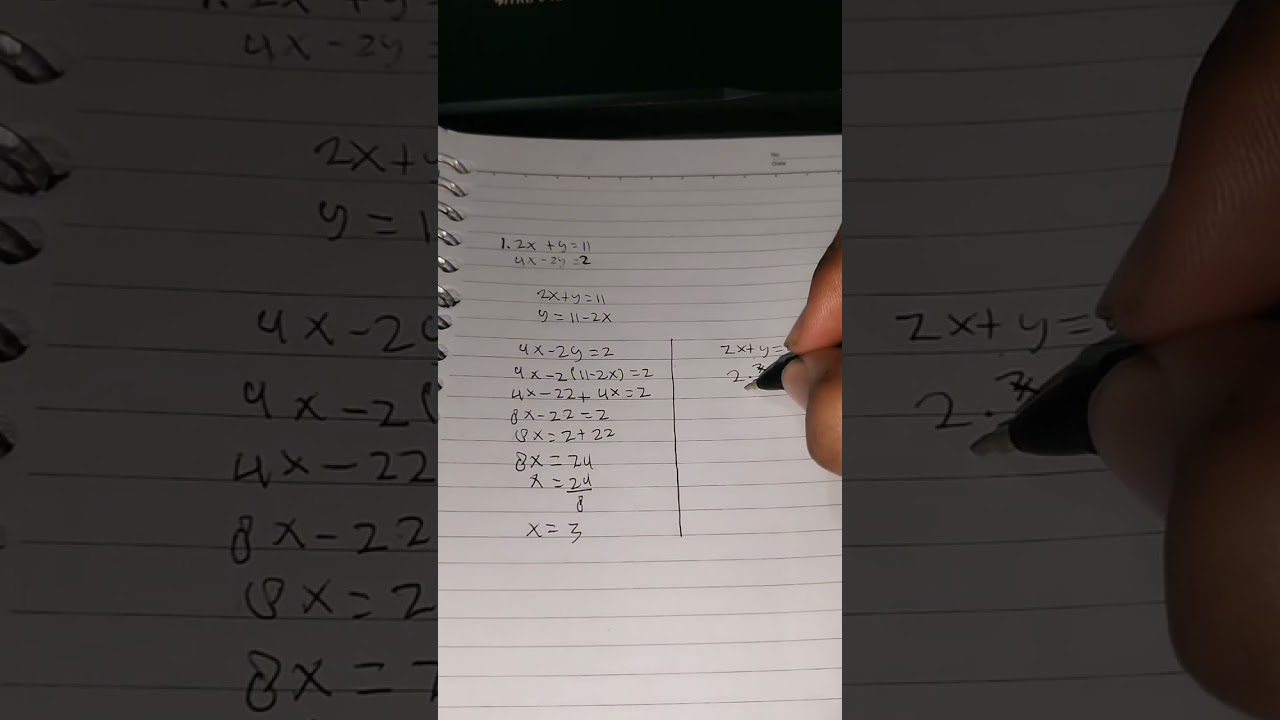 1. 2x + y = 11
4x - 2y = 2
2x + y = 11
y = 11 - 2x
4x - 2y = 2
4x - 2(11 - 2x) = 2
4x - 22 + 4x = 2
8x - 22 = 2
8x = 2 + 22
8x = 24
x = 24
8
x = 3
2x + y =
2 .